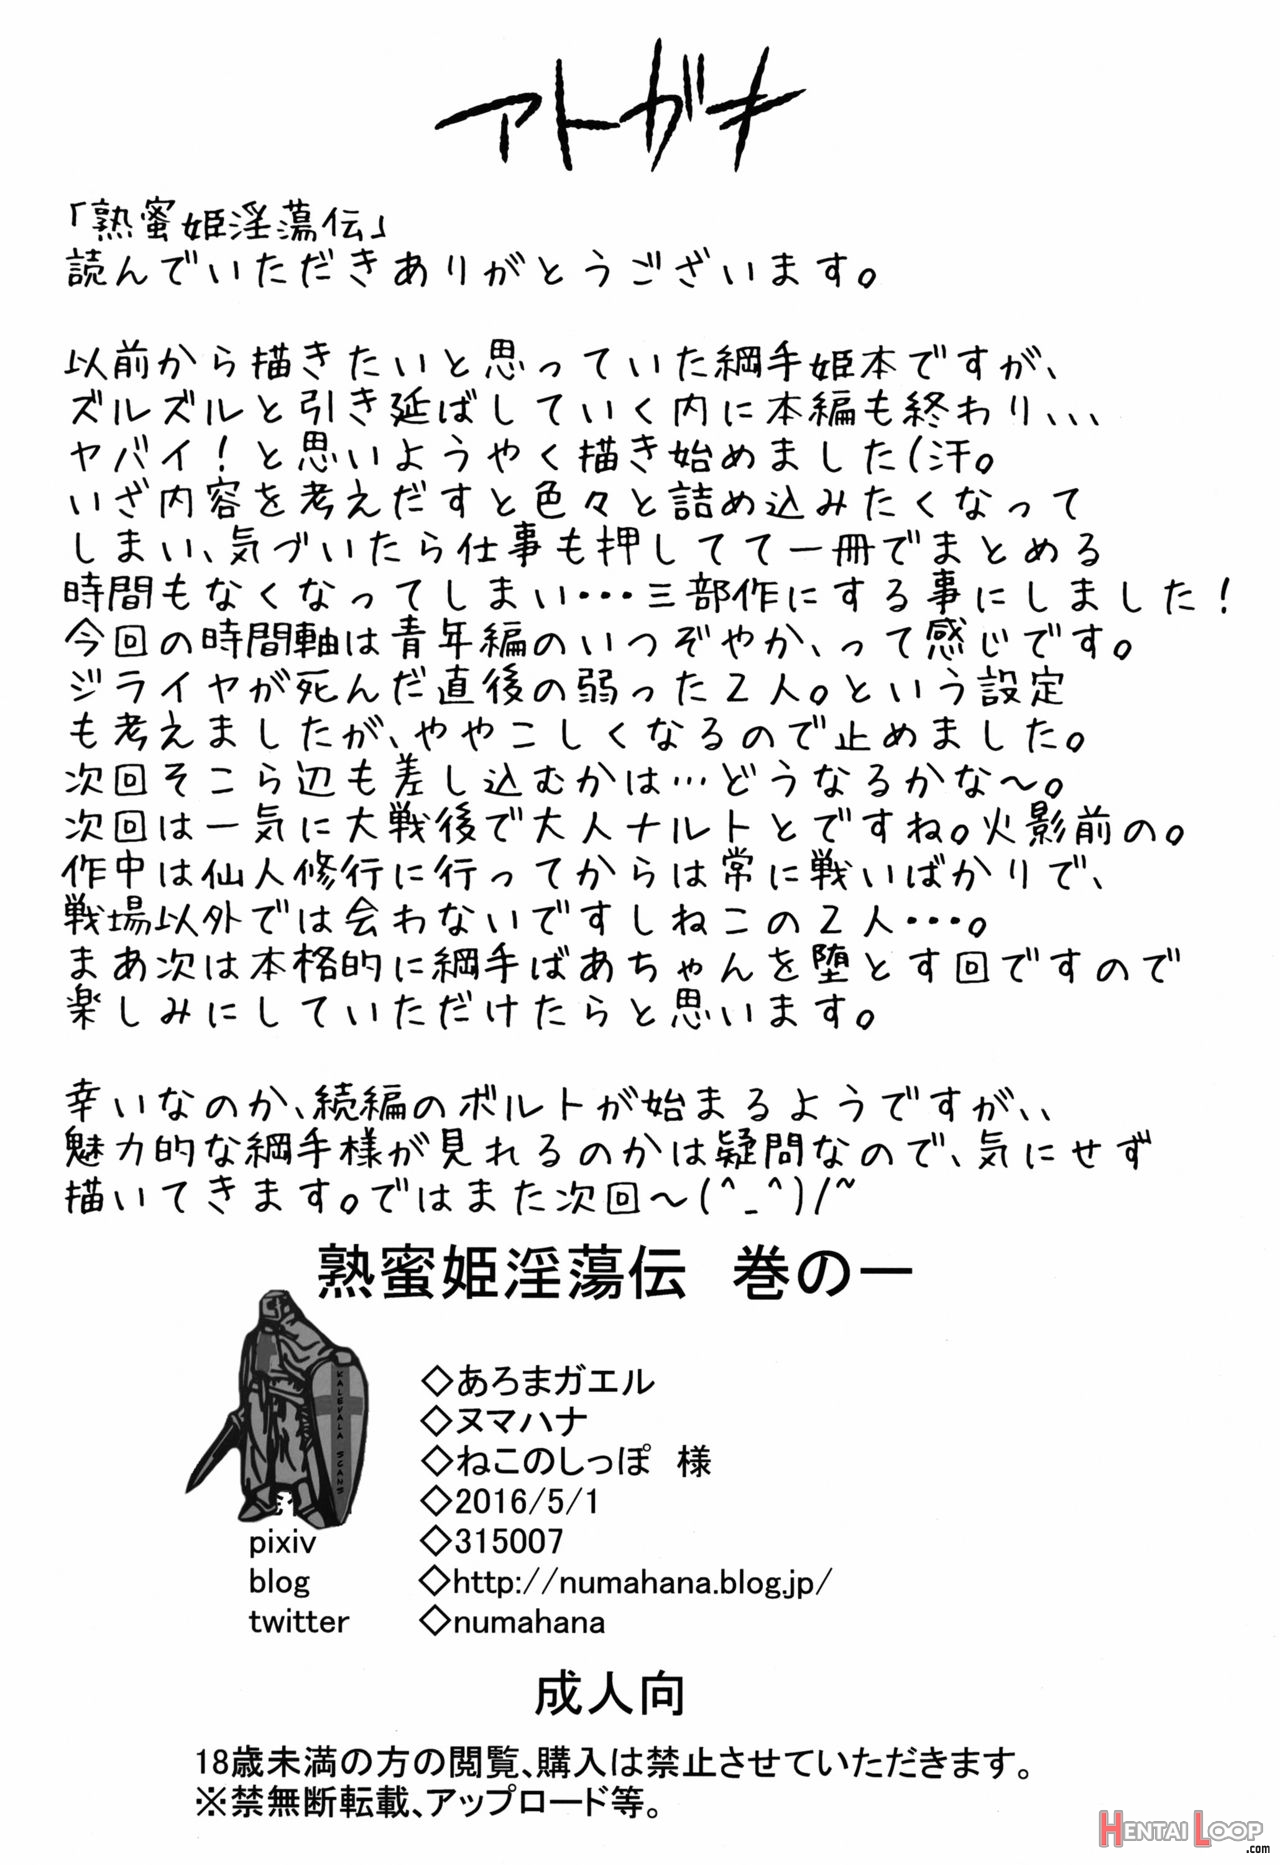 アトガキ
「熟蜜姫淫蕩伝」
読んでいただきありがとうございます。
以前から描きたいと思っていた綱手姫本ですが、
ズルズルと引き延ばしていく内に本編も終わり、、、
ヤバイ！と思いようやく描き始めました(汗。
いざ内容を考えだすと色々と詰め込みたくなって
しまい、気づいたら仕事も押してて一冊でまとめる
時間もなくなってしまい・・・三部作にする事にしました！
今回の時間軸は青年編のいつぞやか、って感じです。
ジライヤが死んだ直後の弱った2人。という設定
も考えましたが、ややこしくなるので止めました。
次回そこら辺も差し込むかは…どうなるかな～。
次回は一気に大戦後で大人ナルトとですね。火影前の。
作中は仙人修行に行ってからは常に戦いばかりで、
戦場以外では会わないですしねこの2人・・・。
まあ次は本格的に綱手ばあちゃんを堕とす回ですので
楽しみにしていただけたらと思います。
幸いなのか、続編のボルトが始まるようですが、、
魅力的な綱手様が見れるのかは疑問なので、気にせず
描いてきます。ではまた次回～(^_^)/~
熟蜜姫淫蕩伝　巻の一
◇あろまガエル
◇ヌマハナ
◇ねこのしっぽ　様
◇2016/5/1
pixiv ◇315007
blog ◇http://numahana.blog.jp/
twitter ◇numahana
KALEVALA SCANS
成人向
18歳未満の方の閲覧、購入は禁止させていただきます。
※禁無断転載、アップロード等。
HENTAI LOOP
.com